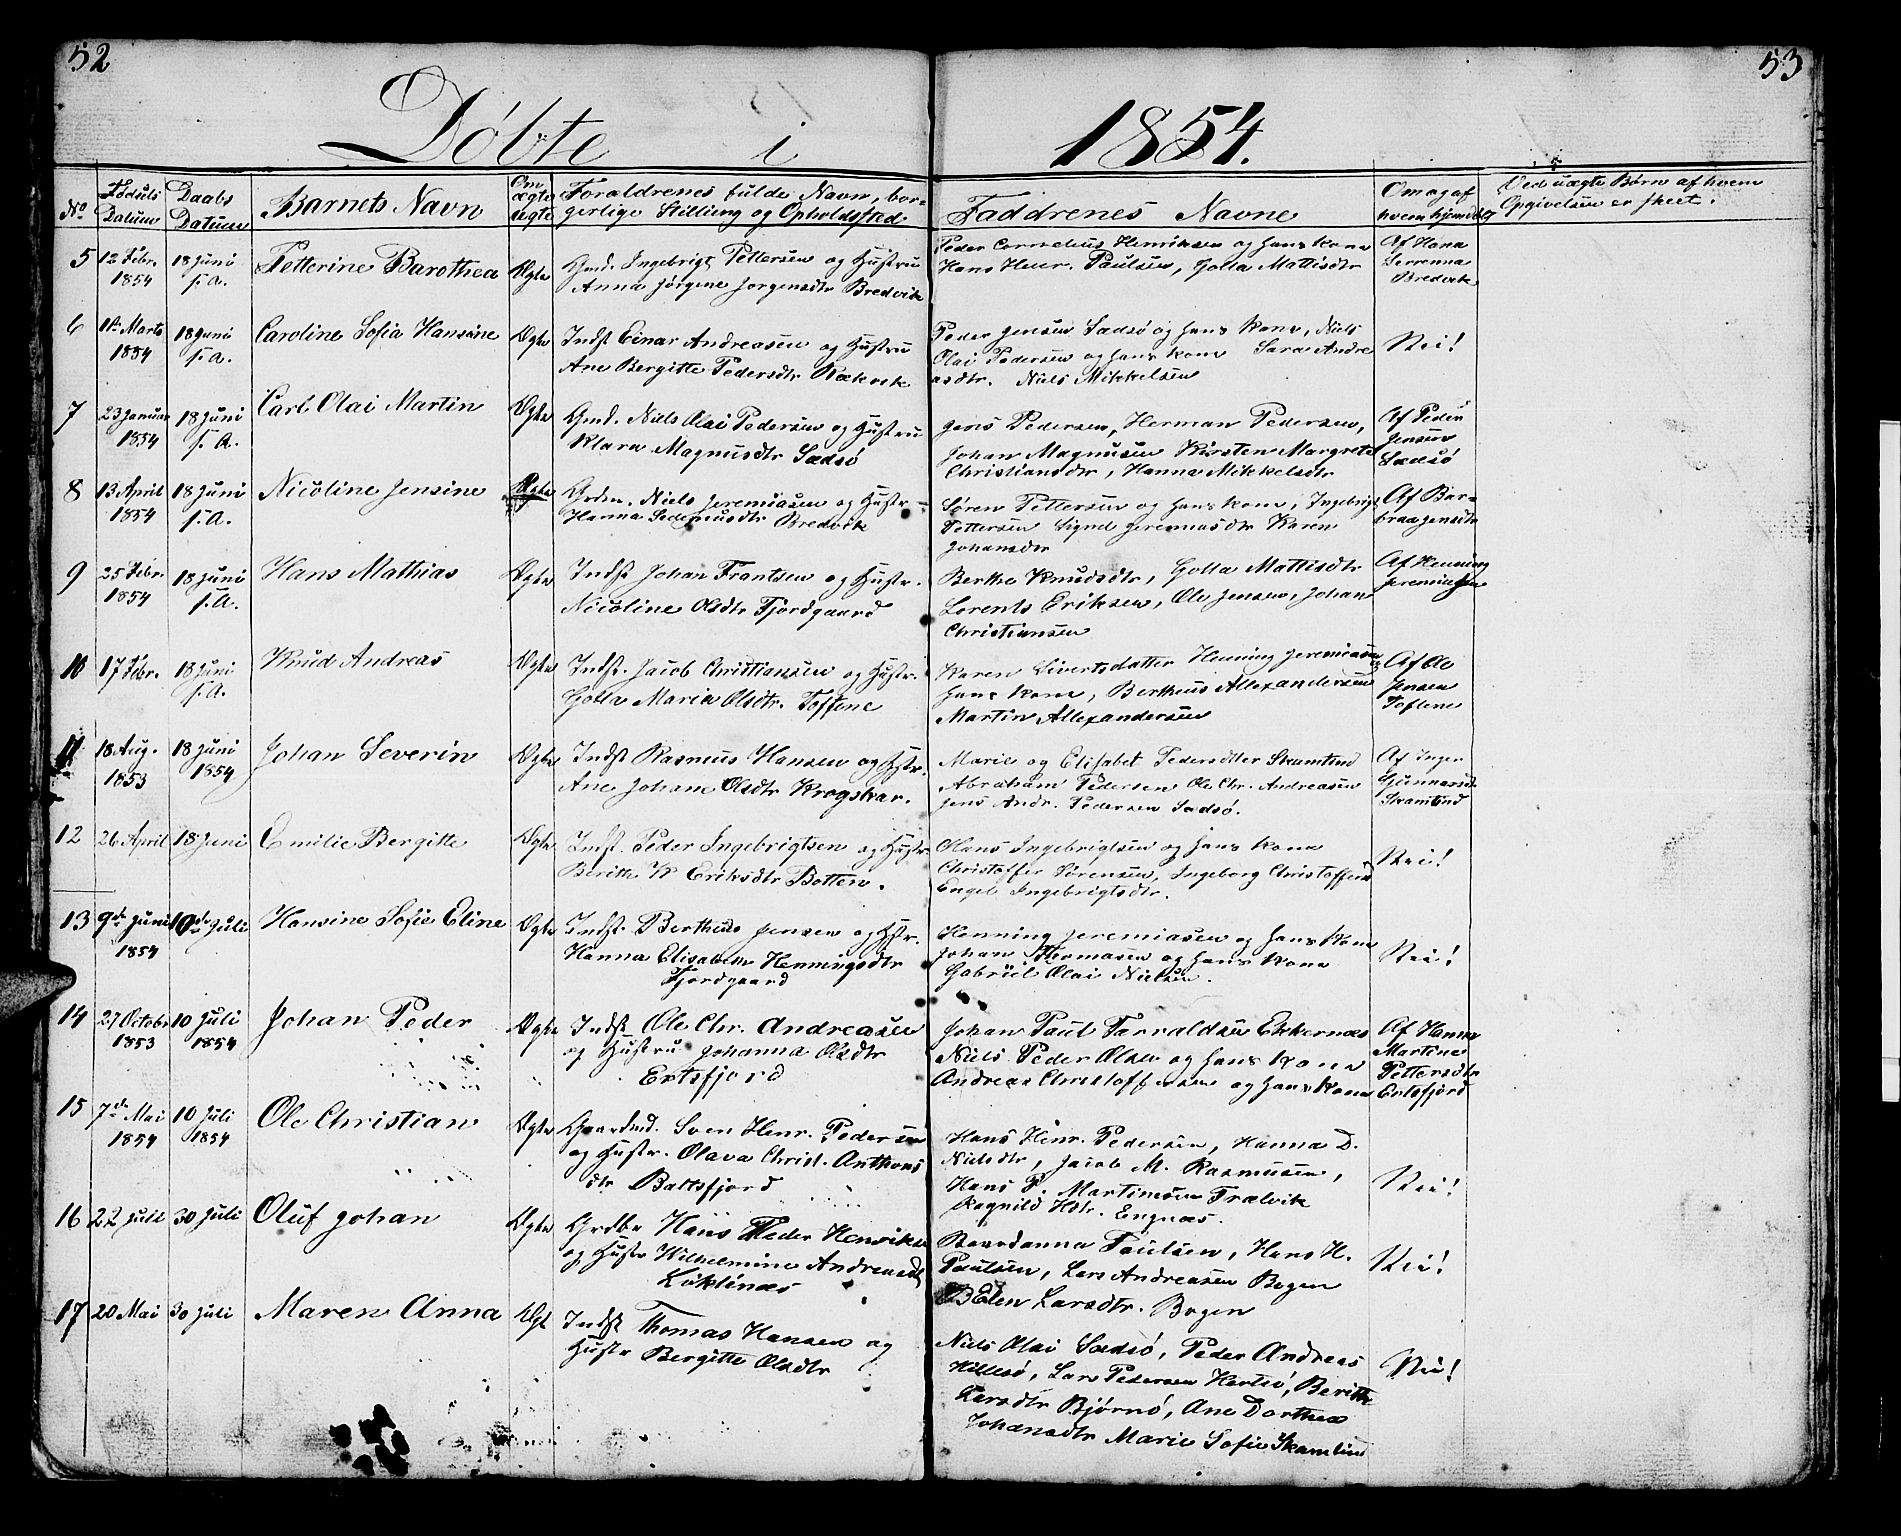 52
53
Döbte i 1854.
No
Fødsels Datum
Daabs Datum
Barnets Navn
Om ægte uegte
Foraldrenes fulde Navn, bor-
gerlige Stilling og Opholdsstæd
Faddrenes Navne
Om og af
hvem hjemdøbt
Ved uægte Børn af hvem
Opgivelsen er skeet.
5 12 Febr. 1854 18 Juni s. A. Petterine Barothea Ægte Gmd. Ingebrigt Pettersen og Hustru
Anna Jørgene Jorgensdtr Bredvik
Peder Cornelius Henriksen og hans kone
Hans Henr. Paulsen, Golla Mattisdtr
Af Hana
Serrenna
Bredvik
6 11te Marts 1854 18 Juni s. A. Caroline Sofia Hansine Ægte Indst Einar Andreasen og Hustru
Ane Bergitte Pedersdtr Rækvik
Peder Jensen Sædsø og hans kone, Niels
Olai Pedersen og hans kone Sara Andre
asdtr. Niels Mikkelsen
Nei!
7 23 Januar 1854 18 Juni s. A. Carl Olai Martin Ægte Gmd. Niels Olai Pedersen og Hustru
Klara Magnusdtr Sædsø
Jens Pedersen, Herman Pedersen,
Johan Magnusen Kirsten Margrete
Christiansdtr, Hanna Mikkelsdtr
Af Peder
Jensen
Sædsø
8 13 April 1854 18 Juni s. A. Nicoline Jensine Ægte Grdm. Niels Jeremiasen og Hustr.
Hanna Sedeniusdtr Bredvik
Søren Pettersen og hans kone, Ingebrigt
Pettersen Signel Jeremiasdtr Karen
Johansdtr
Af Bar-
bra Jensdtr
9 25 Febr. 1854 18 Juni s. A. Hans Mathias Ægte Indst Johan Frantsen og Hustr.
Nicoline Olsdtr Fjordgaard
Berthe Knudsdtr, Golla Mattisdtr
Lorents Eriksen, Ole Jensen, Johan
Christiansen
Af Henning
Jeremiassen
10 17 Febr. 18 Juni s. A. Knud Andreas Ægte Indst. Jacob Christiansen og Hustr.
Golla Maria Olsdtr. Toftene
Karen Sivertsdatter Henning Jeremiasen og
hans kone, Bertheus Allexandersen
Martin Allexandersen
Af Ole
Jensen
Toftene
11 18 Aug. 1853 18 Juni 1854 Johan Severin Ægte Indst Rasmus Hansen og Hstr.
Ane Johane Olsdtr Krogskar.
Marie og Elisabet Pedersdtter Skamtind
Abraham Pedersen Ole Chr. Andreasen
Jens Andr. Pedersen Sædsø.
Af Inger
Gunnarsdtr
Skamtind
12 26 April 18 Juni Emilie Bergitte Ægte Indst. Peder Ingebrigtsen og Hustr.
Berith K Eriksdtr Botten.
Hans Ingebrigtsen og hans kone
Christoffer Sørensen, Ingeborg Christoffersd
Engel Ingebrigtsdtr.
Nei!
13 9de Juni 1854 10de Juli Hansine Sofie Eline Ægte Indst. Bertheus Jensen og Hstr.
Hanna Elisabeth Henningsdtr
Fjordgaard
Henning Jeremiasen og hans kone
Johan Hermasen og hans kone
Gabriel Olai Nielsen.
Nei!
14 27 Octobr 1853 10 Juli 1854 Johan Peder Ægte Indst Ole Chr. Andreasen
og Hustru Johanna Olsdtr
Ertsfjord
Johan Paul Tarraldsen Ekkernæs
Niels Peder Olsen og hans kone
Andreas Christoffersen og hans kone
Af Hanna
Martine
Pettersdtr
Ertsfjord
15 7de Mai 1854 10 Juli 1854 Ole Christian Ægte Gaardmd. Sven Henr. Pedersen
og Hustr. Olava Christ. Anthons
dtr Baltsfjord
Hans Henr. Pedersen, Hanna D.
Nielsdtr, Jacob M. Rasmusen,
Hans P. Martinusen Trælvik
Ragnild Hdtr. Engnæs.
Nei!
16 22 Juli 30 Juli Oluf Johan Ægte Grdbr Hans Peder Henriksen
og Hustr Wilhelmine Andreasdt
Lüklinæs
Baardanna Paulsen, Hans H.
Paulsen, Lars Andreasen Bogen
Elen Larsdtr. Bogen
Nei!
17 20 Mai 30 Juli Maren Anna Ægt Indst Thomas Hansen og
Hustr Bergitte Olsdtr
Niels Olai Sædsø, Peder Andreas
Hillesø, Lars Pedersen Hertsø, Berithe
Larsdtr Bjørnø, Ane Dorthea
Johansdtr Marie Sofie Skamtind
Nei!